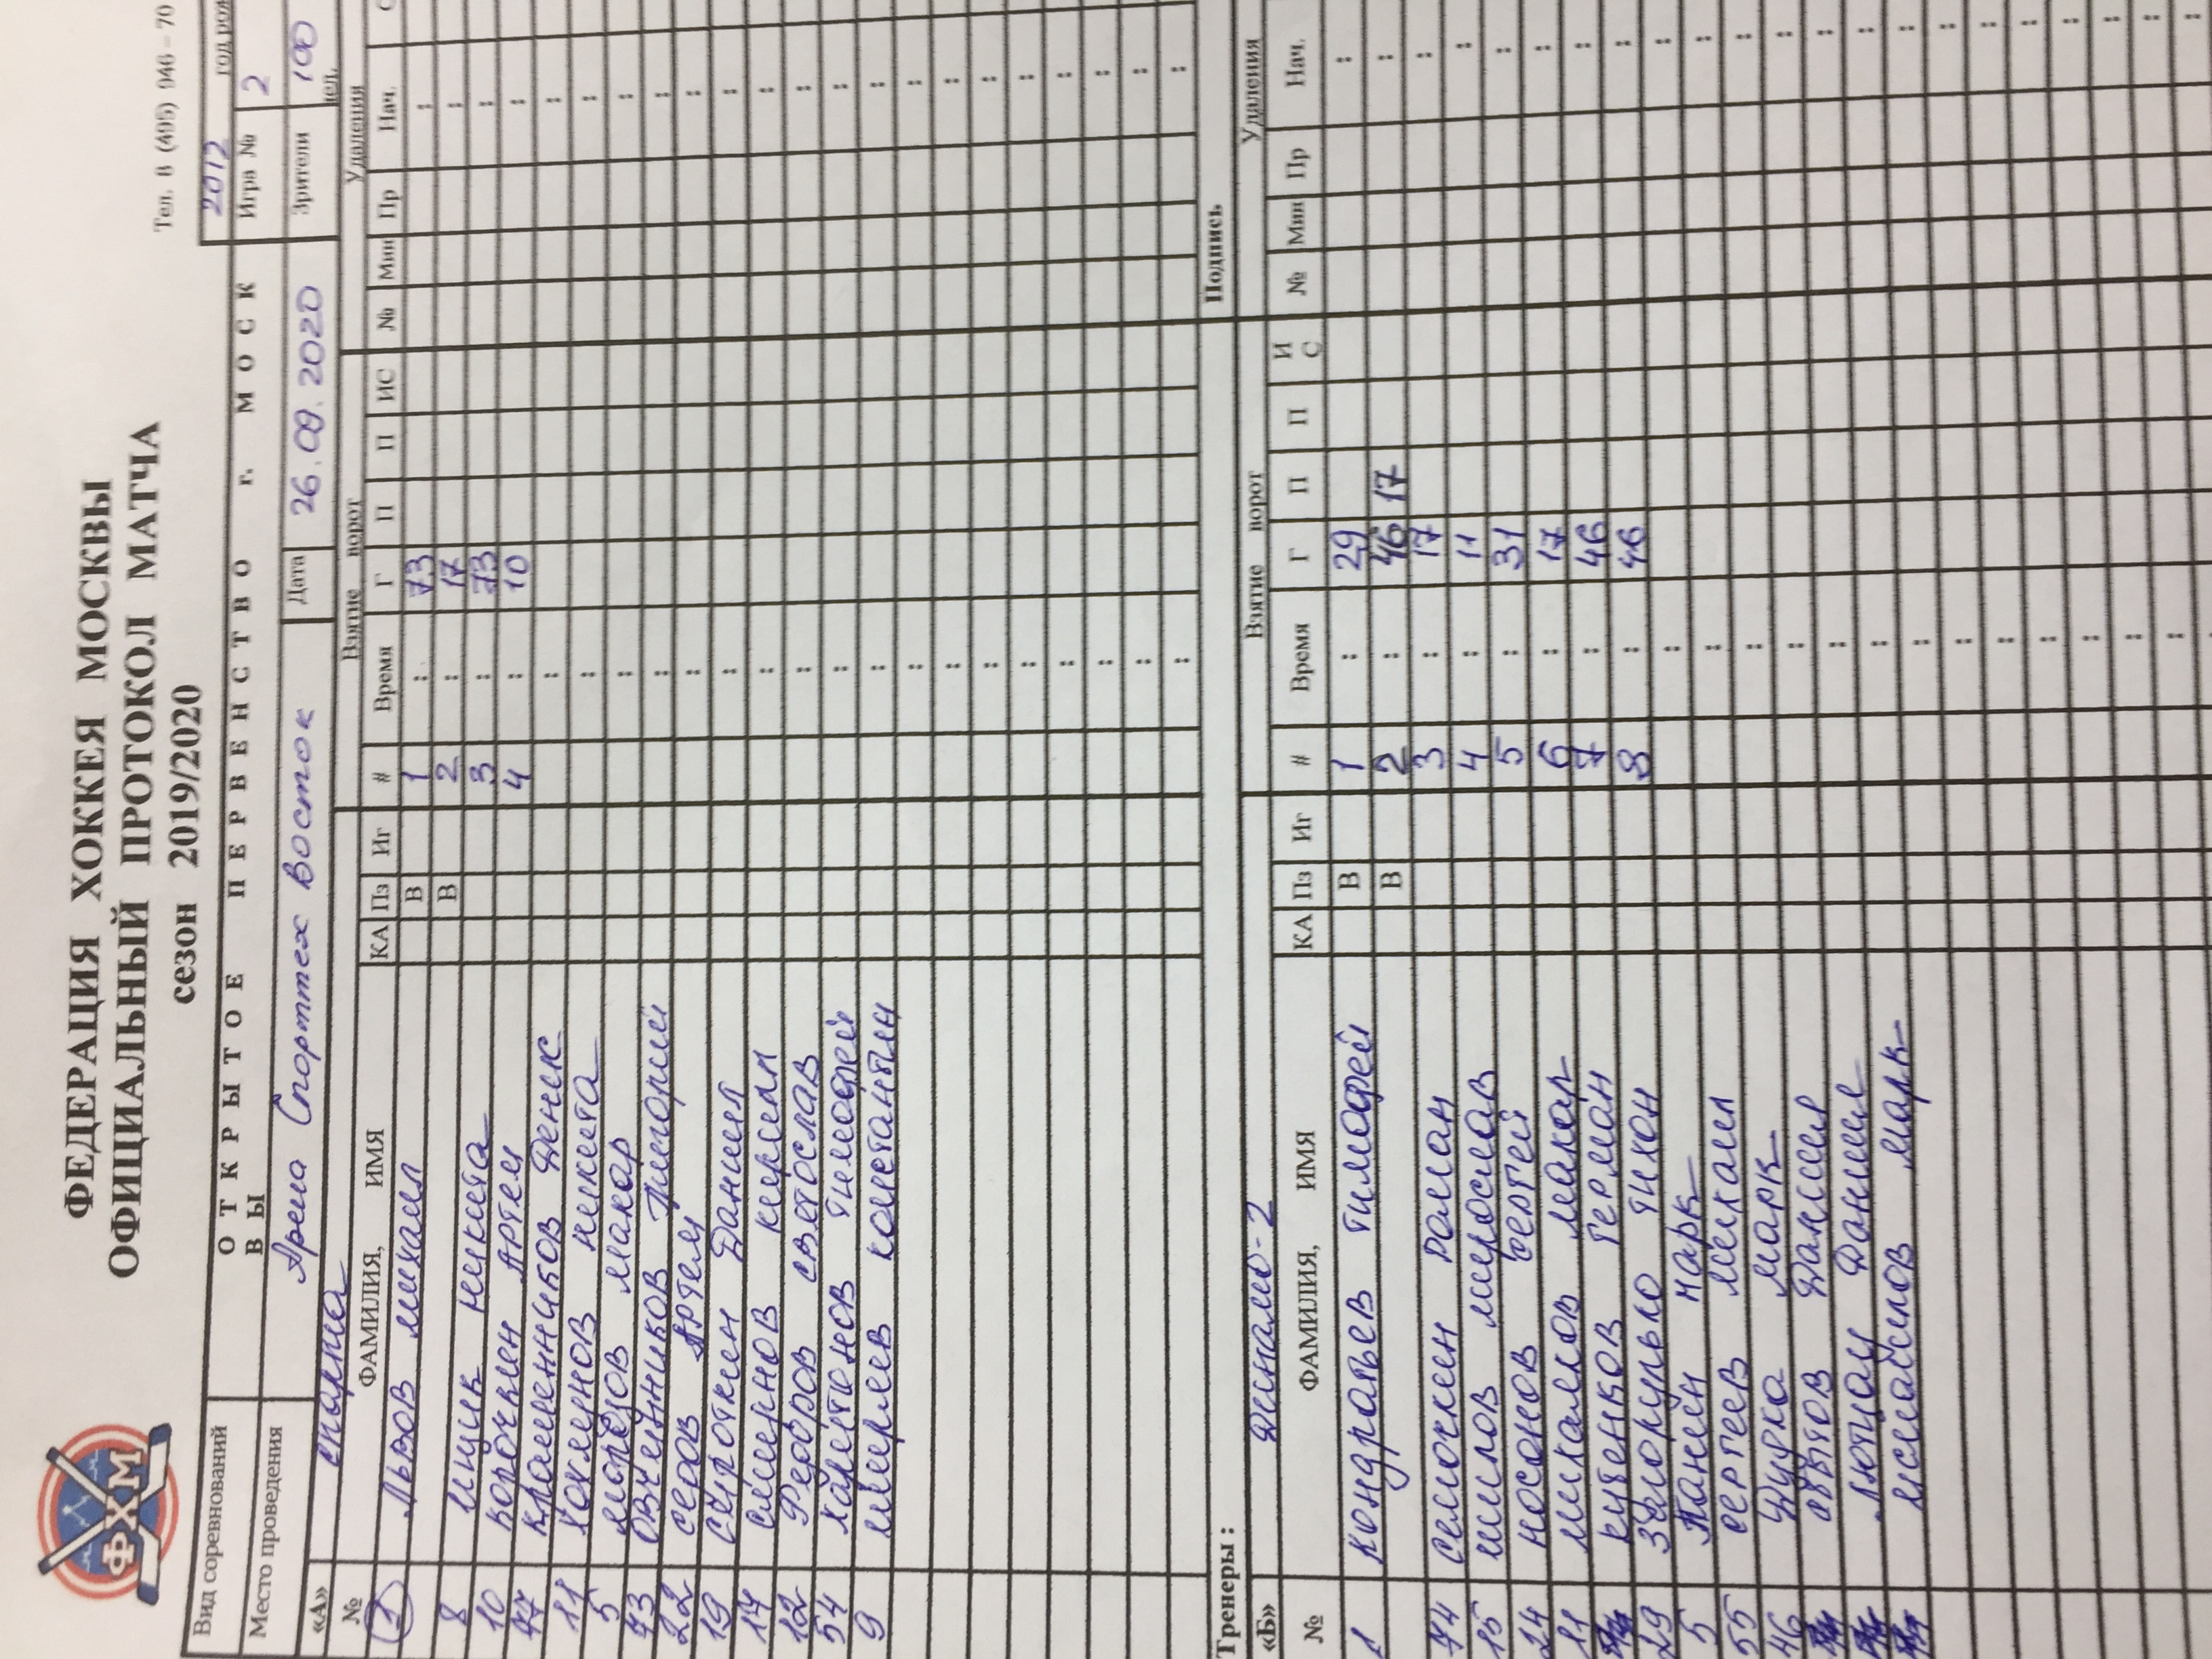 ФХМ
ФЕДЕРАЦИЯ ХОККЕЯ МОСКВЫ
ОФИЦИАЛЬНЫЙ ПРОТОКОЛ МАТЧА
сезон 2019/2020
Тел. 8 (495) 946 – 70
Вид соревнований ОТКРЫТОЕ ПЕРВЕНСТВО г. МОСКВЫ 2012
Место проведения Арена Спортех Восток Дата 26.08.2020 Игра № 2
Зрители 100 чел.
«А» спарта Взятие ворот Удаления
№ ФАМИЛИЯ, ИМЯ КА Пз Иг # Время Г П П ИС № Мин Пр Нач.
1 Львов михаил В 1 : 73 :
В 2 : 17 :
8 ицик никита 3 : 73 :
10 корочкин Артем 4 : 10 :
77 крашенников Денис : :
11 никита : :
5 морозов макар : :
73 Овчинников Григорий : :
22 серов Артем : :
19 сироткин Даниил : :
17 смирнов кирилл : :
12 Ребров светослав : :
54 харитонов тимофей : :
9 константин : :
Тренеры : Подпись
«Б» Динамо-2 Взятие ворот Удаления
№ ФАМИЛИЯ, ИМЯ КА Пз Иг # Время Г П П ИС № Мин Пр Нач.
1 кондратьев тимофей В 1 : 29 :
В 2 : 46 17 :
74 семочкин роман 3 : 17 :
15 шилов мирослав 4 : 11 :
24 носонов сергей 5 : 31 :
11 михалков макар 6 : 17 :
кутенков герман 7 : 46 :
29 тихон 8 : 46 :
5 Панин марк : :
55 сергеев михаил : :
46 Щурка марк : :
Даниил : :
лютых Даниил : :
исмаилов марк : :